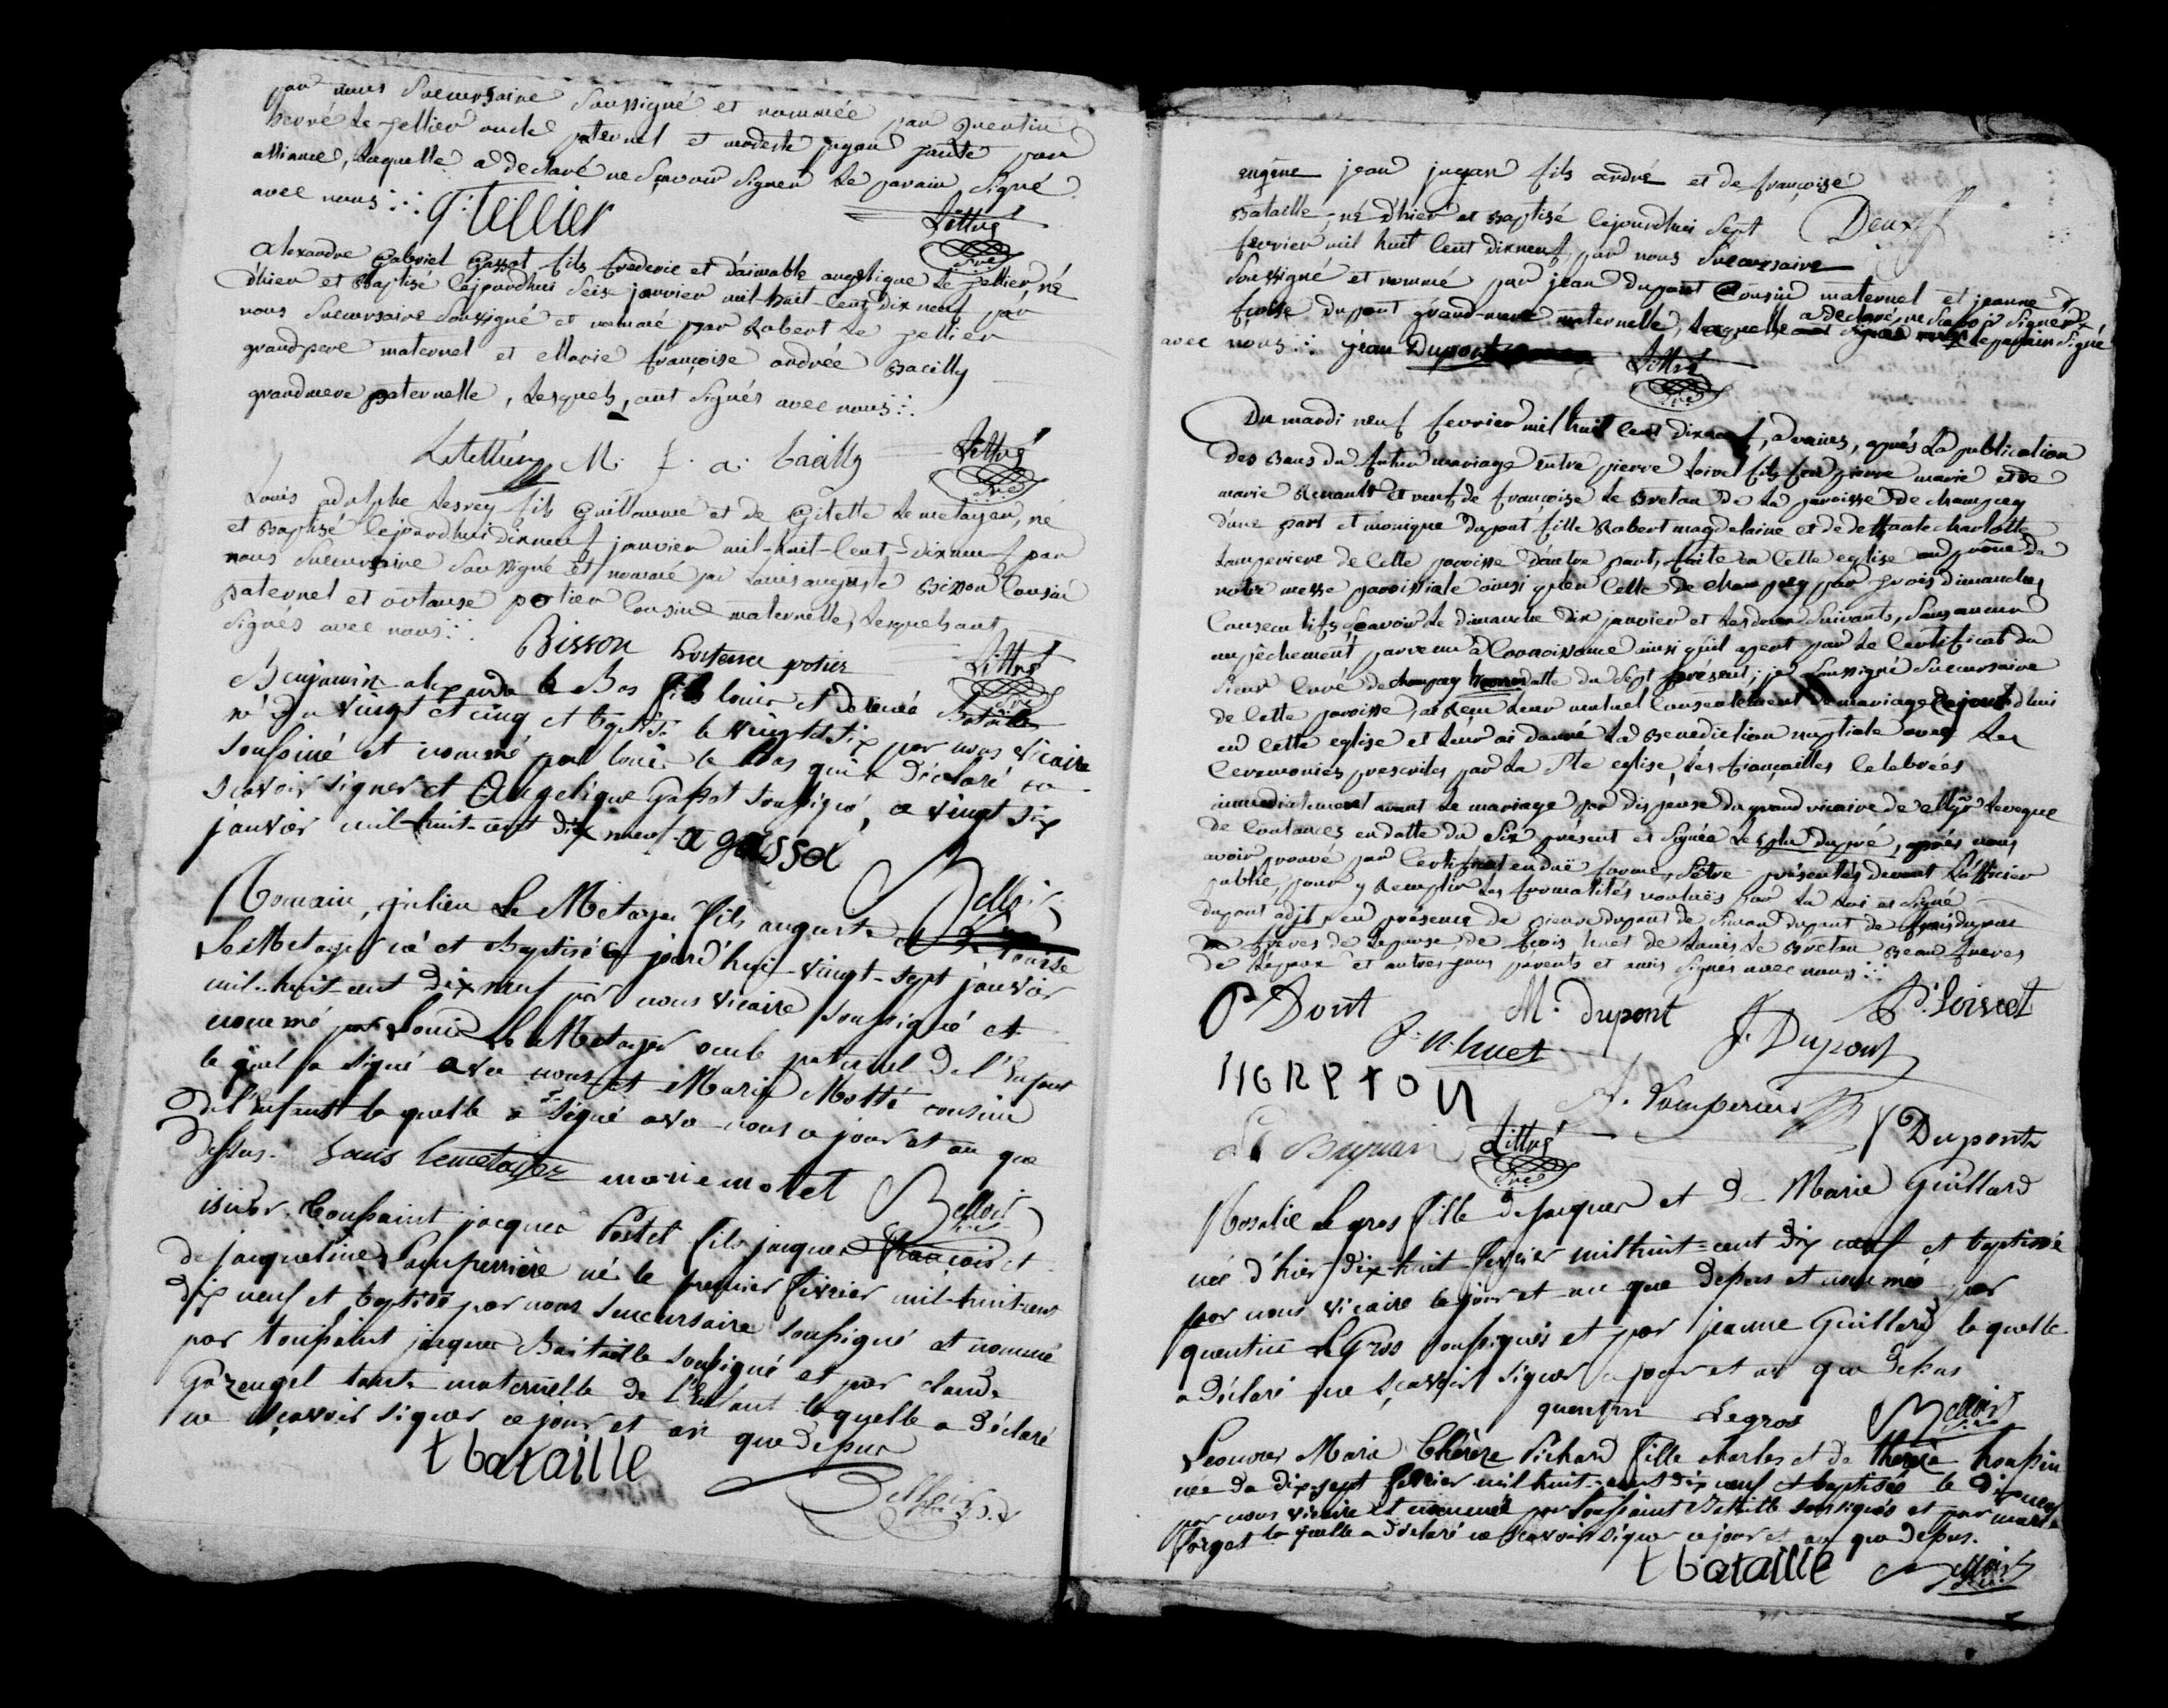 par nous Succursaire Soussigné et nommée par Quentin
hervé Le tellier oncle paternel et modeste jugan tante par
alliance, Laquelle a declaré ne Sçavoir Signer Le parain Signé
avec nous
tellier
Littré
Alexandre Gabriel Gassot fils frederic et d'aimable angelique Le tellier, né
d'hier et Baptisé cejourdhui Seize janvier mil-huit-cent dix neuf par
nous Succursaire Soussigné et nommé par Robert Le tellier
grandpere maternel et Marie françoise andrée Bacilly
grandmere paternelle, Lesquels, ont Signés avec nous
Letellier M. f. a. bacilly Littré
Louis adolphe Lesrey fils Guillaume et de Gitette Lemetayer, né
et Baptisé cejourdhui dixneuf janvier mil-huit-cent-dixneuf par
nous Succursaire Soussigné et nommé par Louis auguste Bisson Cousin
paternel et ortanse potier Cousine maternelle, Lesquels ont
Signés avec nous
Bisson hortense potier Littré
Benjamin alexandre le Bas fils louis et de renée Bataille
né du vingt et cinq et baptisé le vingt et six par nous vicaire
soussiné et nommé par louis le Bas qui a déclaré ne
scavoir signer et Angelique Gassot soussigné, ce vingt six
janvier mil-huit-cent dix neuf a gassot
Belloir
Romain, julien Le Metayer fils auguste et
Le Metayer né et Baptisé ce jourd'hui vingt-sept janvier
mil-huit-cent dix neuf par nous vicaire soussigné et
nommé par Louis Le Metayer oncle paternel de l'enfant
le quel a signé avec nous et Marie Motté cousine
de l'enfant la quelle a signé avec nous ce jour et an que
dessus. Louis lemetayer marie motet Belloir
isidor toussaint jacques Postel fils jacques françois et
de jacqueline Lomperriere né le premier fevrier mil-huit-cent
dix neuf et baptisé par nous succursaire soussigné et nommé
par toussaint jacques Bataille soussigné et par claude
Gazengel tante maternelle de l'enfant laquelle a déclaré
ne sçavoir signer ce jour et an que dessus
t bataille Belloir
eugene jean jugan fils andré et de françoise
Bataille, né d'hier et Baptisé cejourdhui Sept
fevrier mil huit Cent dixneuf par nous Succursaire
Soussigné et nommé par jean dupont Cousin maternel et jeanne
dupont grand-mere maternelle, Laquelle a declaré ne Savoir Signer Le parain Signé
avec nous jean Dupont Littré
Du mardi neuf fevrier mil huit Cent dixneuf, après La publication
des Bans du futur mariage entre pierre Loisel fils feu pierre marie et de
marie Renault et veuf de françoise Le Breton de La paroisse de champcey
d'une part et monique dupont fille Robert magdelaine et de charlotte
Lomperiere de Cette paroisse d'autre part, faite en Cette eglise au prône de
notre messe paroissiale ainsi qu'en Celle de champcey par trois dimanches
Consecutifs Sçavoir Le dimanche dix janvier et Les deux Suivants, Sans aucun
empêchement parvenu à Connoissance ainsi qu'il apert par Le Certificat du
Sieur Curé de champcey datte du Sept présent; je Soussigné Succursaire
de Cette paroisse, ai Reçu Leur mutuel Consentement de mariage cejourdhui
en Cette eglise et Leur ai donné La Benediction nuptiale avec Les
Ceremonies prescrites par La Ste eglise, Les fiançailles Celebrées
immediatement avant Le mariage par dispense du grand vicaire de Mgr Leveque
de Coutances en datte du Six présent et Signée dupré, après nous
avoir prouvé par Certificat en duë forme, S'être présentés devant L'officier
public, pour y Remplir Les formalités vouluës par La Loi et Signé
dupont adjt, en présence de pierre dupont de Simon dupont de
freres de Lepouse, de fçois huet de Louis Le Breton Beau freres
de L'époux et autres parents et amis Signés avec nous
P Dont M. dupont P. Loiseel
f. n. huet f. Dupont
Lomperiere
Littré Dupont
Rosalie Le gros fille de jacques et de Marie Guillard
née d'hier dix-huit fevrier mil huit-cent dix neuf et baptisée
par nous vicaire ce jour et an que dessus et nommée par
quentin LeGros soussignés et par jeanne Guillard la quelle
a déclaré ne sçavoir signer ce jour et an que dessus
quentin Legros Belloir
Leonore Marie Thérèze Pichard fille charles et de thérèze houssin
née du dix-sept fevrier mil huit-cent dix neuf et baptisée le dix neuf
par nous vicaire et nommée par toussaint Bataille soussignés et par marie
forget la quelle a déclaré ne scavoir signer ce jour et an que dessus.
t bataille Belloir